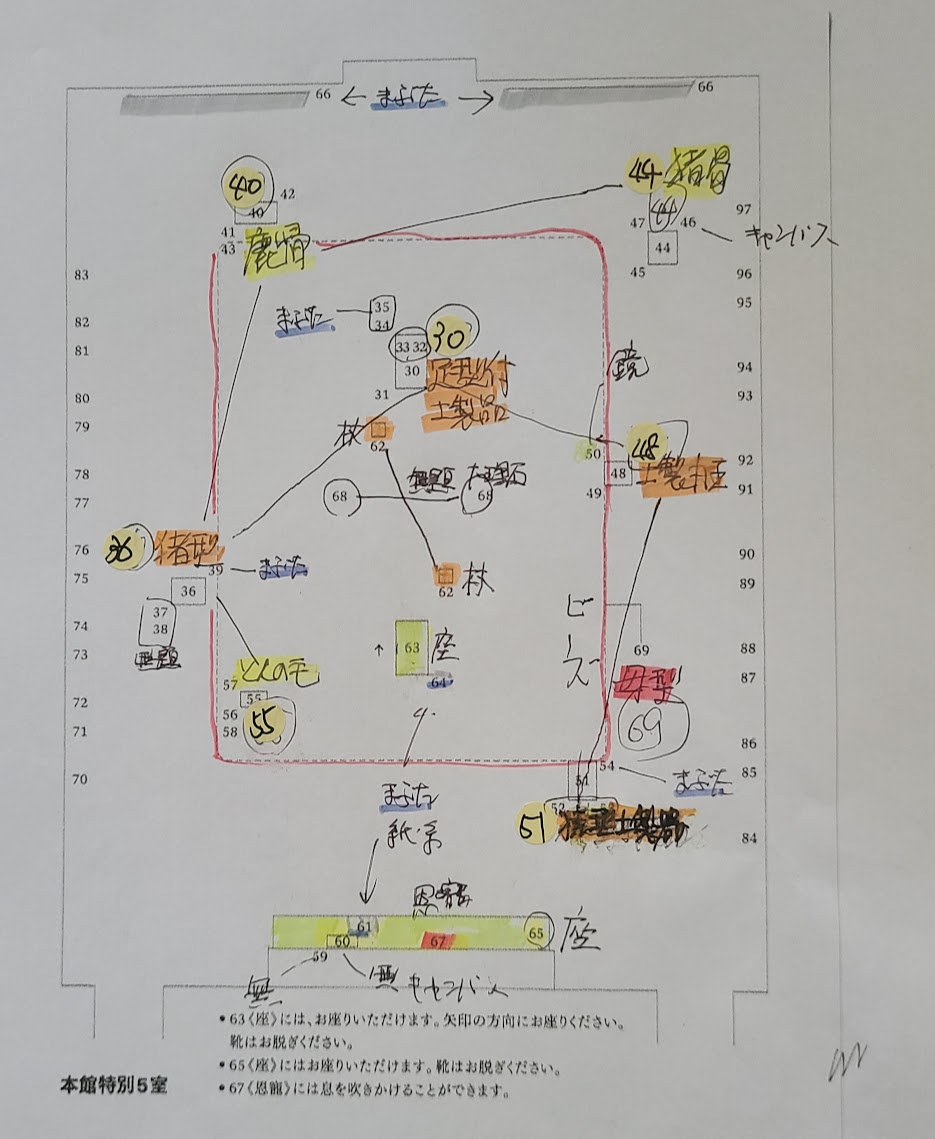 66 ← まぶた → 66
40 42
40
41
43 鹿骨
44 猪骨
44
47 46 97
キャンバス
44
45 96
83
95
82
まぶた 35
34
81
33 32 30
30 足型付
土製品
鏡
94
31
80 93
79 杖
62
50 48 92
48 土製
49 91
78
無題 大理石
77 68 68
76 36 猪型
39 まぶた
90
75 36
杖
62
89
37
38
無題
74
ビーズ
69
63 座
64
88
73
どんの毛
57
母型
69
87
72 55
56 55
58
71
86
70
54 まぶた
85
51
51
84
まぶた
紙・糸
恩寵
61
60 67 65 座
59
無 無 キャンバス
•63《座》には、お座りいただけます。矢印の方向にお座りください。
靴はお脱ぎください。
•65《座》にはお座りいただけます。靴はお脱ぎください。
•67《恩寵》には息を吹きかけることができます。
本館特別5室